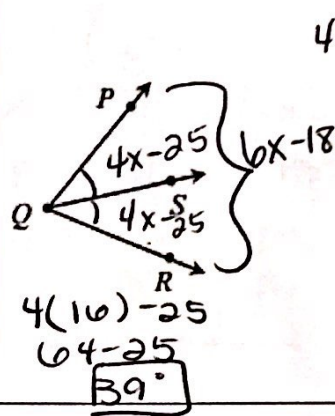 4
P
4x-25
6x-18
Q
S
4x-25
R
4(16)-25
64-25
39°